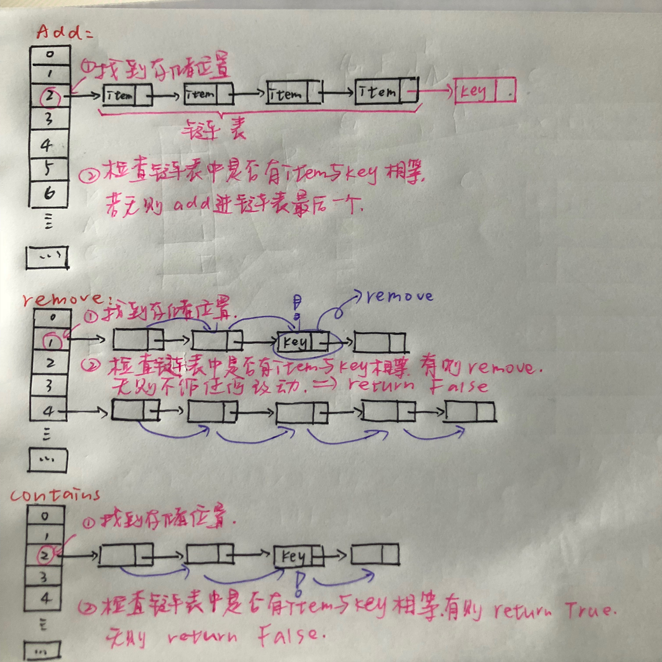 Add:
0
1
① 找到存储位置
2
item
item
item
item
key
3
链表
4
5
② 检查链表中是否有item与key相等,
6
若无则add进链表最后一个.
...
remove:
0
① 找到存储位置.
remove
1
key
2
② 检查链表中是否有item与key相等,有则remove.
3
无则不作任何改动.=> return False
4
...
contains
0
① 找到存储位置.
1
2
key
3
4
② 检查链表中是否有item与key相等,有则return True.
无则 return False.
...